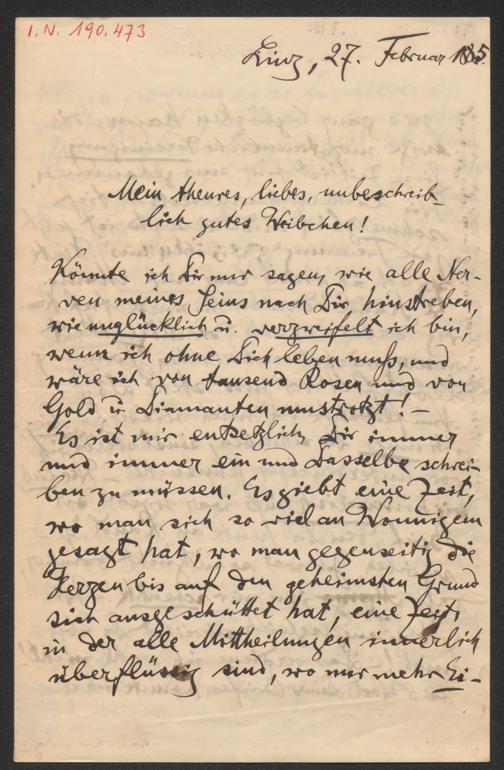 I.N. 190.473
Linz, 27. Februar 185
Mein theures, liebes, unbeschreib-
lich gutes Weibchen!
Könnte ich Dir nur sagen, wie alle Ner-
ven meines Seins nach Dir hinstreben,
wie unglücklich u. verzweifelt ich bin,
wenn ich ohne Dich leben muß, und
wäre ich von tausend Rosen und von
Gold u. Diamanten umstrotzt! –
Es ist mir entsetzlich Dir immer
und immer ein und dasselbe schrei-
ben zu müssen. Es giebt eine Zeit,
wo man sich so viel an Wonnigem
gesagt hat, wo man gegenseitig die
Herzen bis auf den geheimsten Grund
sich ausgeschüttet hat, eine Zeit,
in der alle Mittheilungen innerlich
überflüssig sind, wo nur mehr Ei-